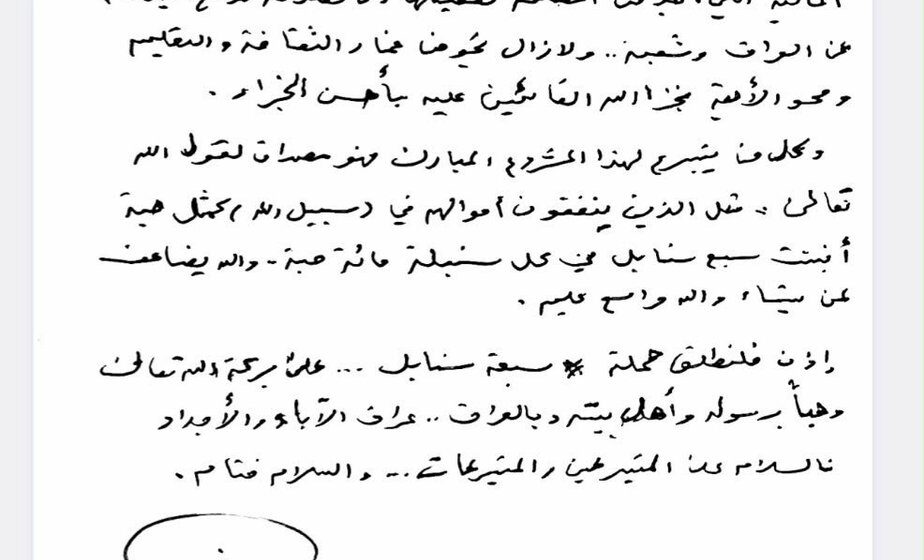 عن العراق وشعبه.. ولازال يخوض غمار الثقافة والتعليم
ومحو الأمية فجزا الله القائمين عليه بأحسن الجزاء.
وكل من يتبرع لهذا المشروع المبارك فهو مصداق لقول الله
تعالى: مثل الذين ينفقون أموالهم في (سبيل الله) كمثل حبة
أنبتت سبع سنابل في كل سنبلة مائة حبة - والله يضاعف
لمن يشاء والله واسع عليم.
إذن فلنطلق حملة سبعة سنابل ... على بركة الله تعالى
وحباً برسوله وأهل بيته وبالعراق.. عراق الآباء والأجداد
فالسلام على المتبرعين والمتبرعات ... والسلام ختام.